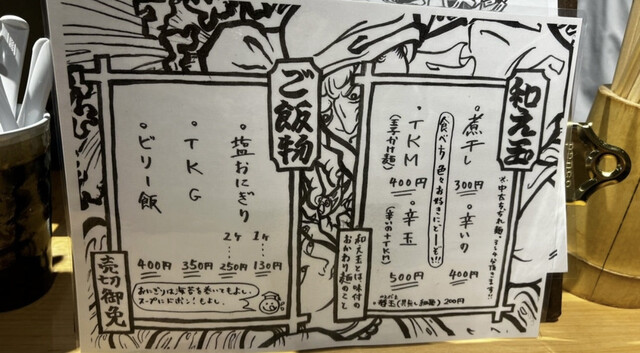 和え玉
※中太ちぢれ麺、そして今頂きます!!
・煮干し 300円
・辛いの 400円
食べ方 色々お好きにどーぞ!!
・TKM 400円
(玉子かけ麺)
・辛玉 500円
(辛いの+TKM)
・替玉 200円
和え玉とは味付の
おかわり麺のこと
ご飯物
・塩おにぎり
1ヶ 130円
2ヶ 250円
・TKG 350円
・ビリー飯 400円
おにぎりは海苔を巻いてもよし、
スープにドボン!もよし。
売切御免